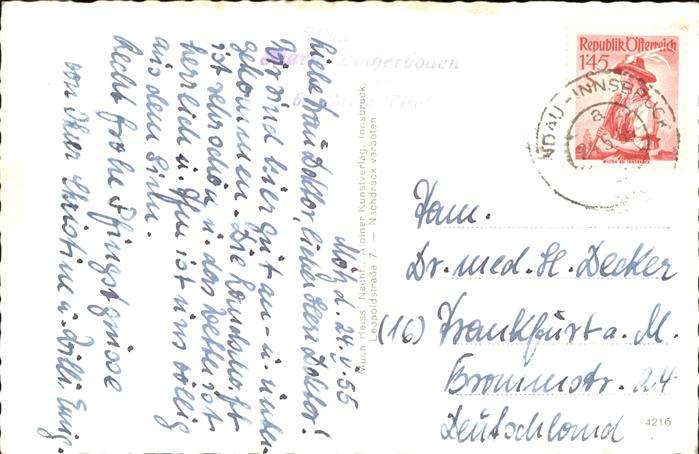 Mötz d. 24.V.55
Liebe Frau Doktor, lieber Herr Doktor!
Wir sind hier gut an- u. unter-
gekommen. Die Landschaft
ist sehr schön u. das Wetter ist
herrlich u. ist uns völlig
aus dem Sinn.
Recht frohe Pfingstgrüsse
von Ihrer Christine u. Willi
Much Heiss' Nachf., Alpiner Kunstverlag, Innsbruck,
Leopoldstraße 7. — Nachdruck verboten
Republik Österreich
145
LINDAU-INNSBRUCK
Fam.
Dr. med. H. Decker
(16) Frankfurt a. M.
Brommstr. 24
Deutschland
4216